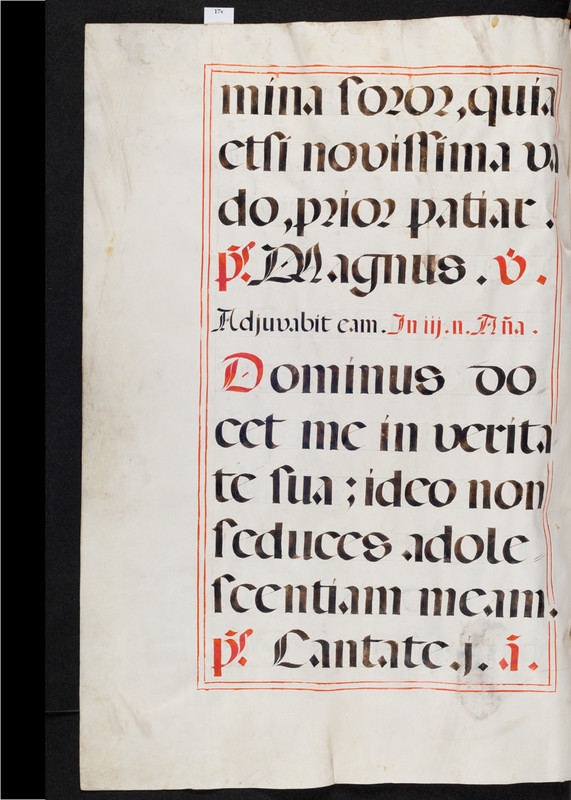 17v
mina ſoror, quia
etſi noviſſima va
do, prior patiar.
pſ. Magnus. v̇.
Adjuvabit eam. In iij. n. Aña.
Dominus do
cet me in verita
te ſua; ideo non
ſeduces adole
ſcentiam meam.
pſ. Cantate. j. ā.